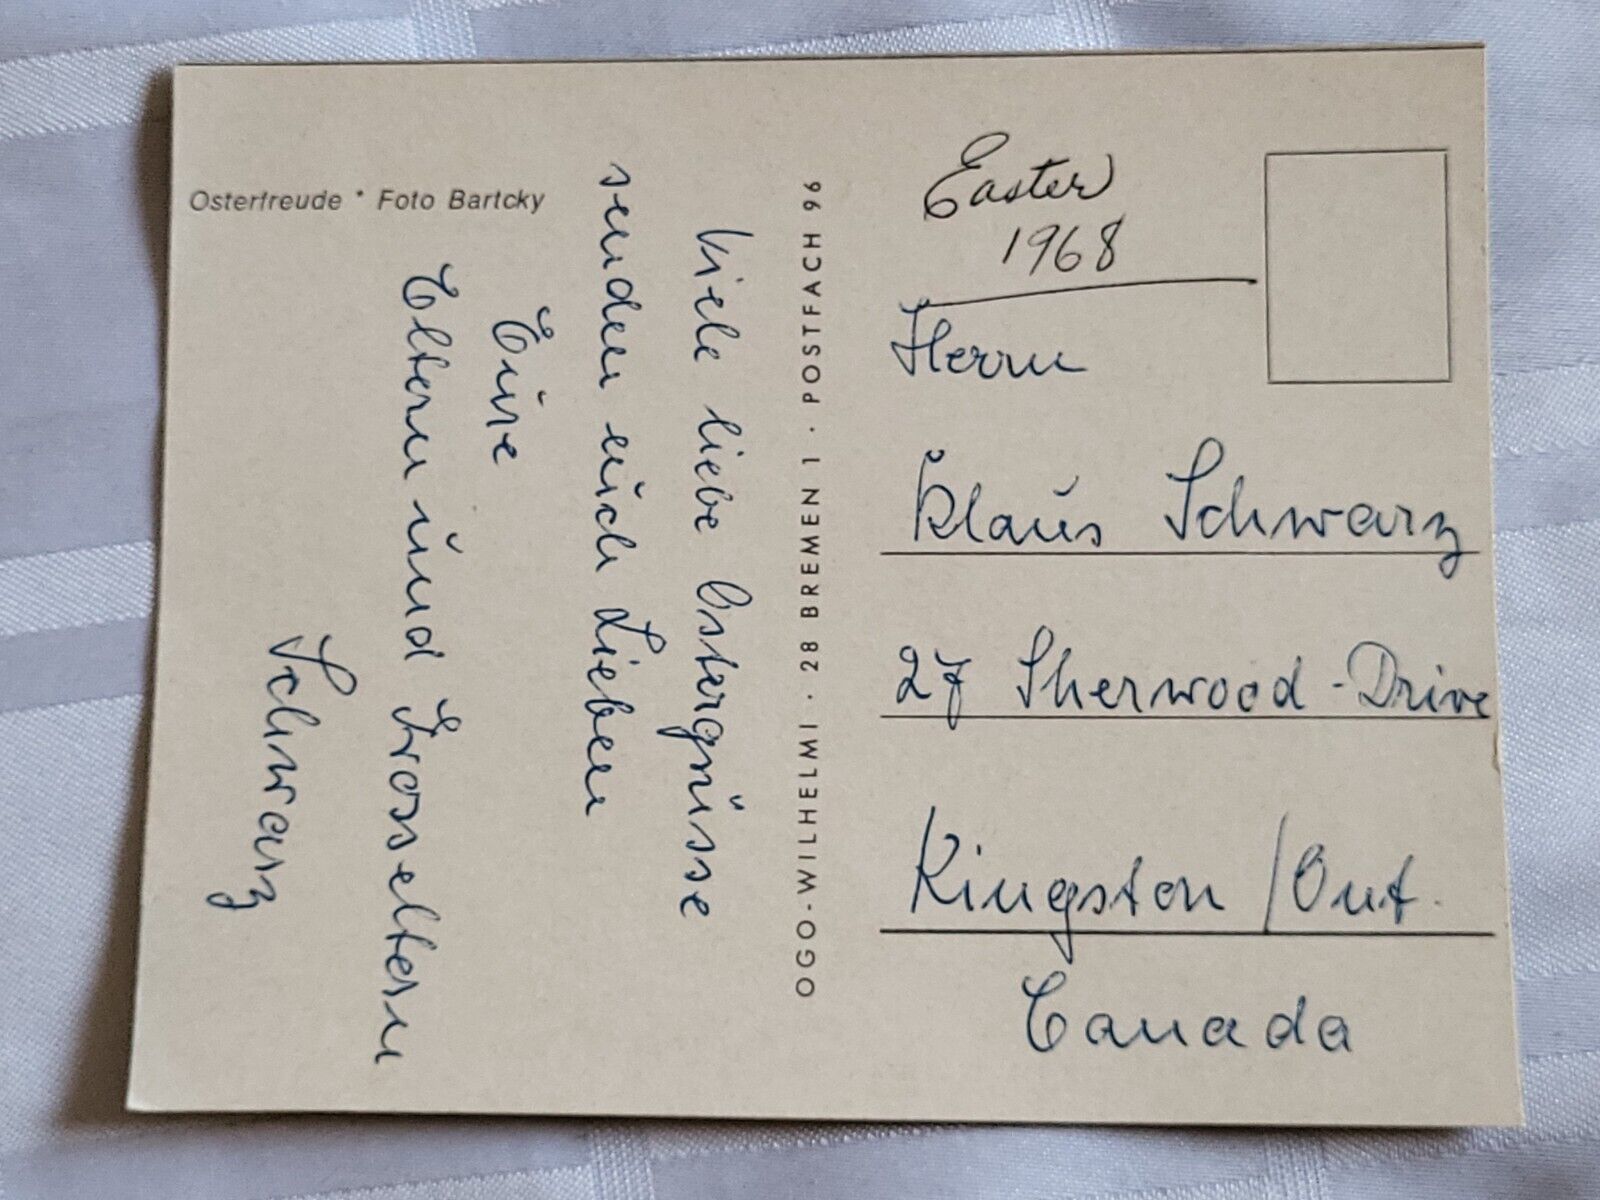 Osterfreude * Foto Bartcky
Viele liebe Ostergrüsse
senden euch Lieben
Eure
Eltern und Grosseltern
Schwarz
OGO-WILHELMI · 28 BREMEN 1 · POSTFACH 96
Easter
1968
Herrn
Klaus Schwarz
27 Sherwood-Drive
Kingston / Ont.
Canada